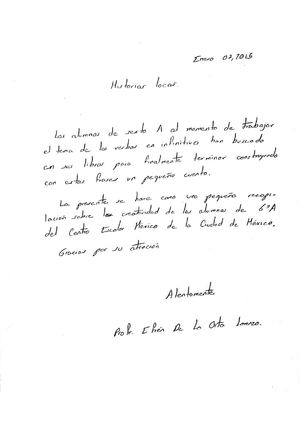 Enero 07, 2015
Historias locas.
Los alumnos de sexto A al momento de trabajar
el tema de los verbos en infinitivo han buscado
en sus libros para finalmente terminar construyendo
con estas frases un pequeño cuento.
La presente se hace como una pequeña recopi-
lación sobre la creatividad de los alumnos de 6ºA
del Centro Escolar México de la Ciudad de México.
Gracias por su atención
Atentamente
Profr. Efrén De La